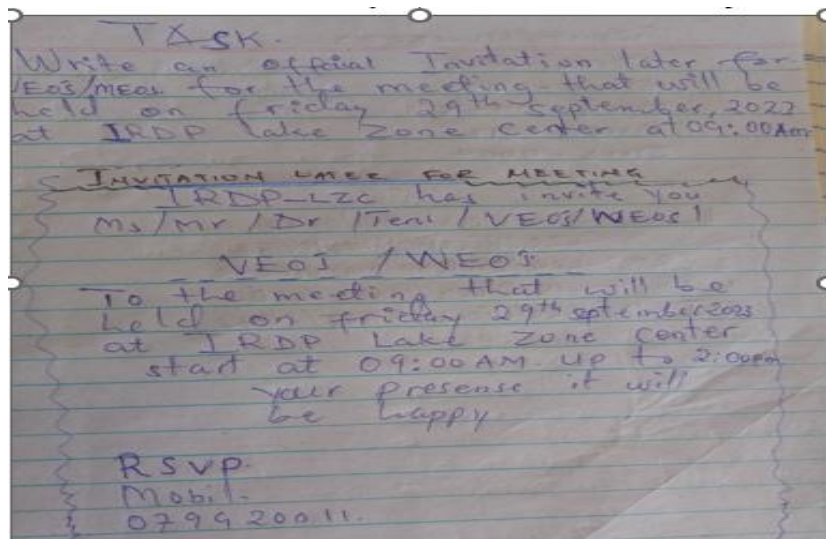 TASK.
Write an official Invitation later for
VEOs/MEOs for the meeting that will be
held on friday 29th september, 2023
at IRDP Lake Zone center at 09:00Am
INVITATION LATER FOR MEETING
IRDP-LZC has invite you
Ms/Mr/Dr/Teni/VEOs/WEOs/
VEOs /WEOs
To the meeting that will be
held on friday 29th september 2023
at IRDP Lake Zone center
start at 09:00AM up to 2:00pm
your presense it will
be happy
RSVP.
Mobil.
0799 200 11.